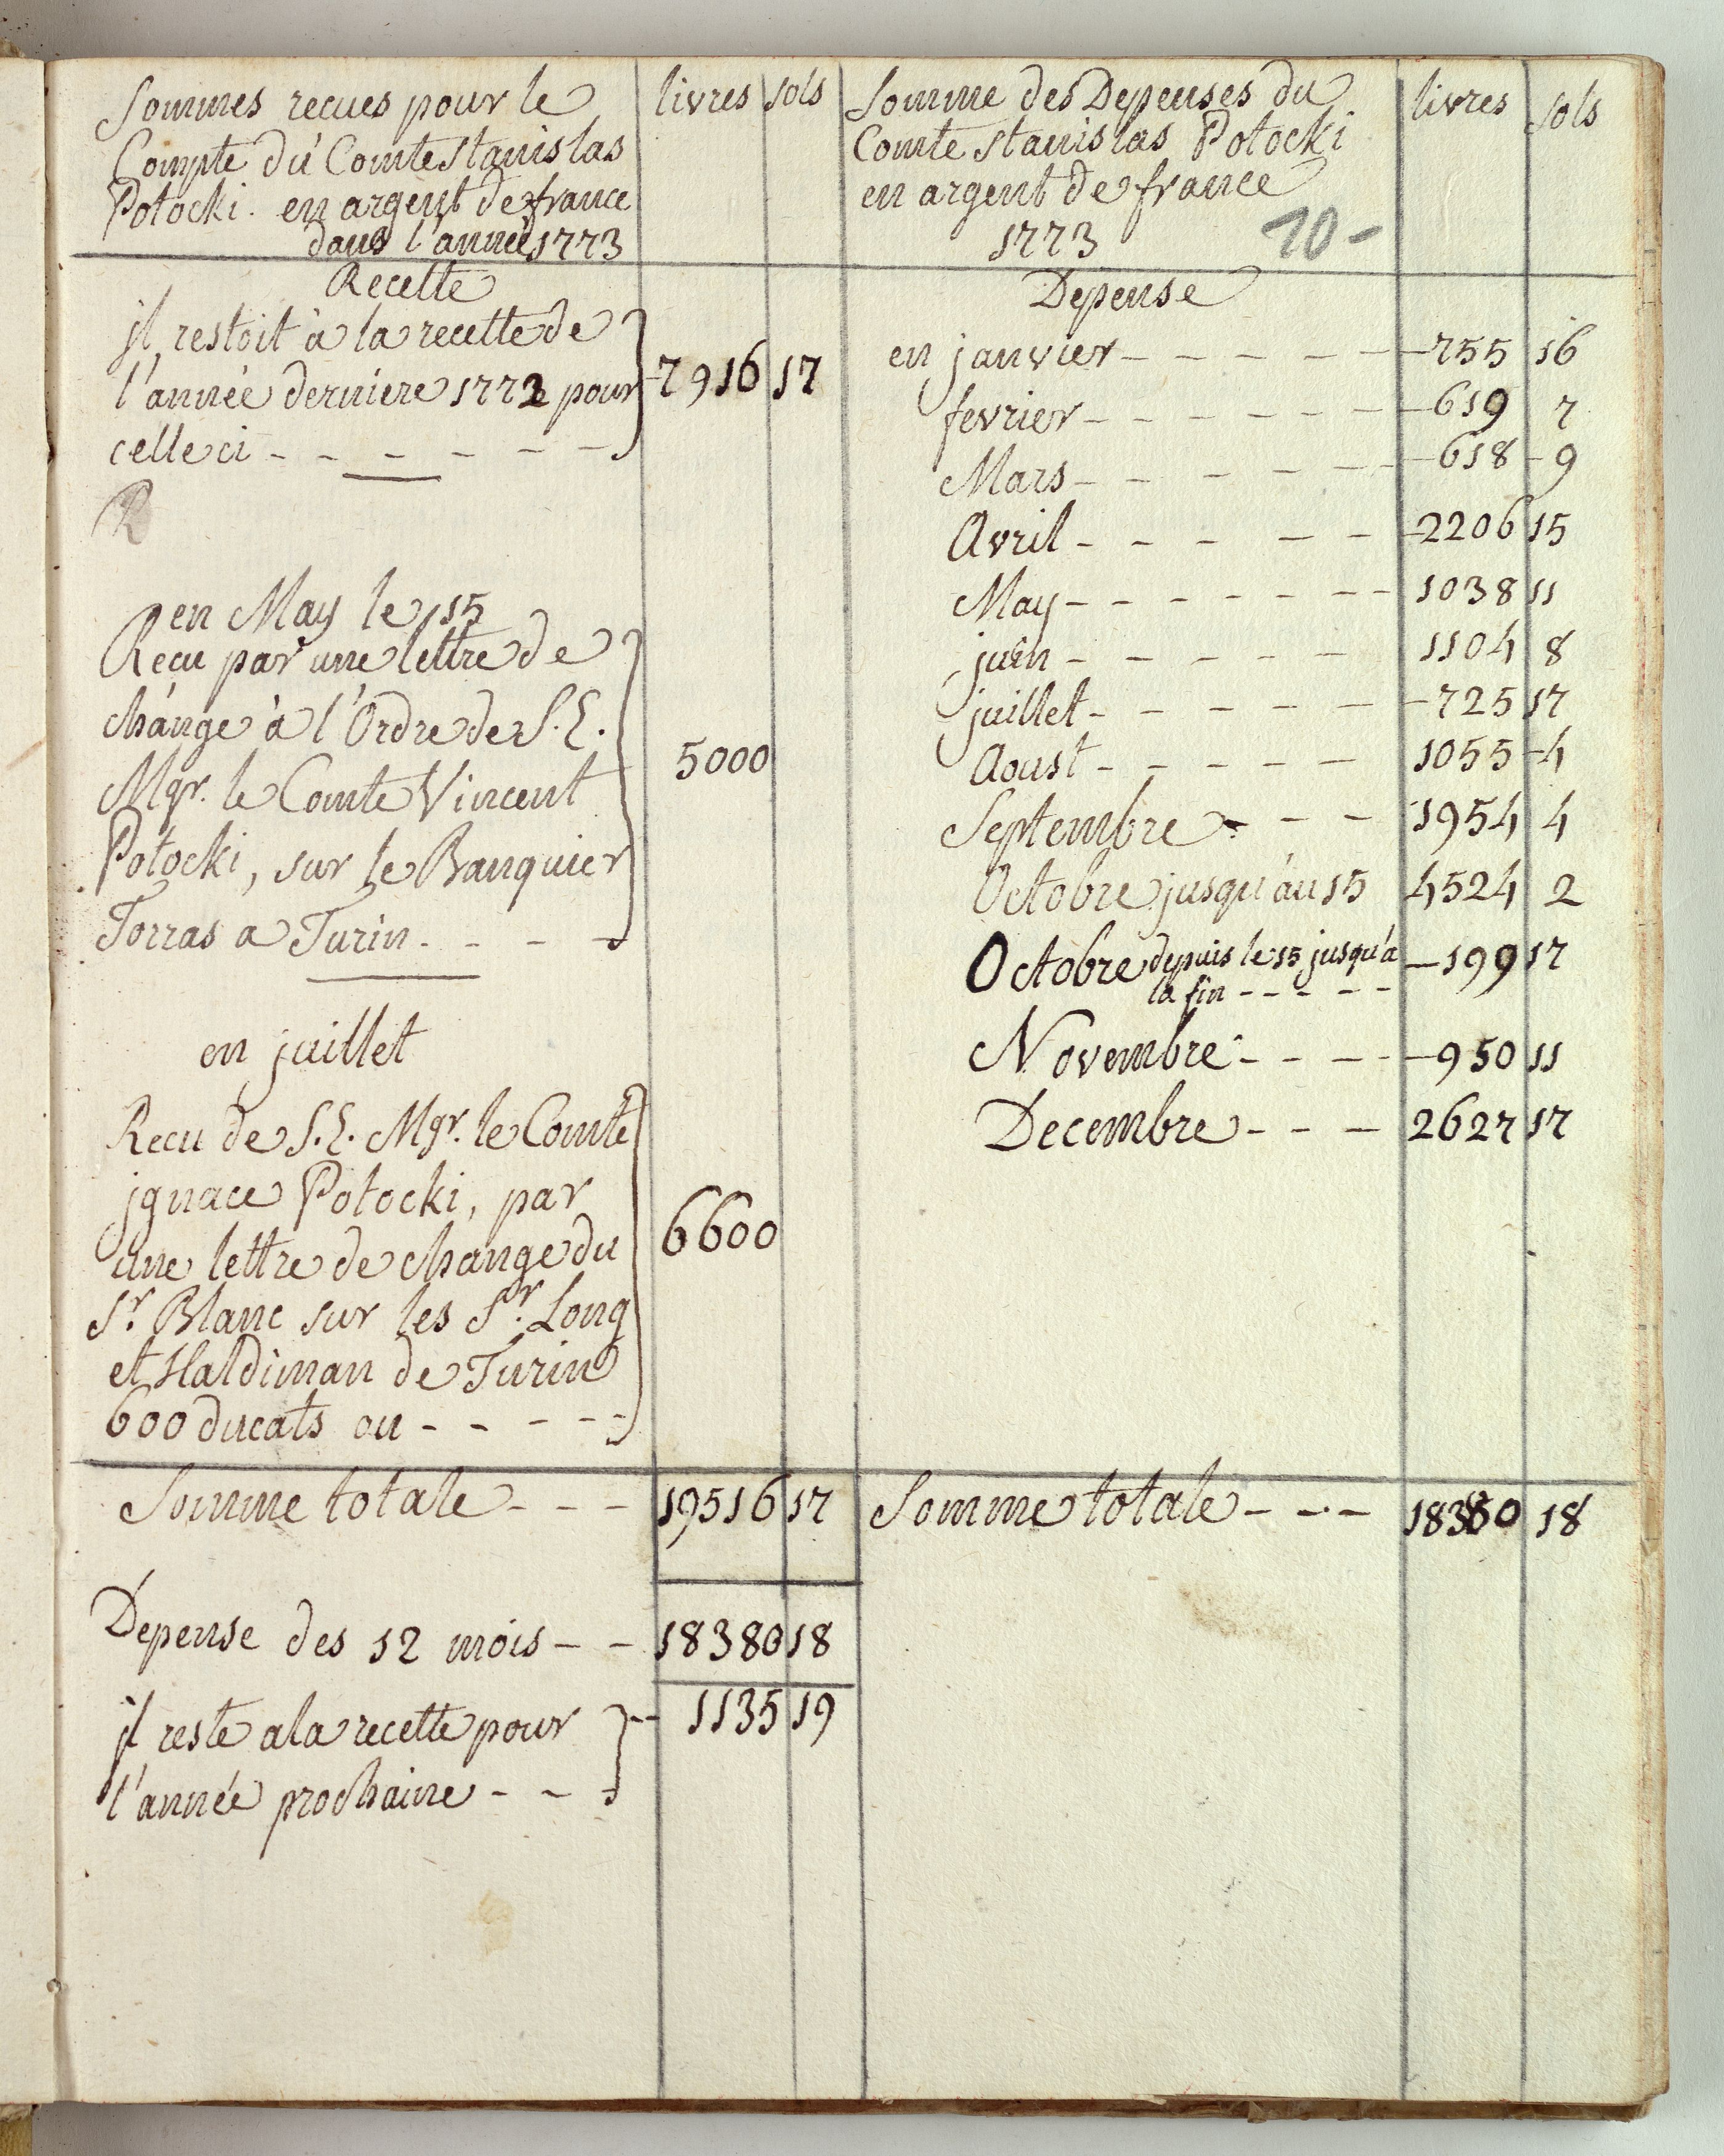 Sommes recues pour le
Compte du Comte Stanislas
Potocki. en argent de france
dans l'année 1773
livres sols
Recette
jl restoit à la recette de
l'année derniere 1772 pour
celle ci - - - - - - 7916 17
R
en May le 15
Recu par une lettre de
change à l'Ordre de S. E.
Mgr. le Comte Vincent
Potocki, sur le Banquier
Torras a Turin - - - - 5000
en juillet
Recu de S. E. Mgr. le Comte
jgnace Potocki, par
une lettre de change du
Sr. Blanc sur les Sr. Long
et Haldiman de Turin
600 ducats ou - - - - - 6600
Somme totale - - - 19516 17
Depense des 12 mois - - 18380 18
jl reste a la recette pour
l'année prochaine - - - 1135 19
Somme des Depenses du
Comte Stanislas Potocki
en argent de france
1773
10-
livres sols
Depense
en janvier - - - - - - 755 16
fevrier - - - - - - - 619 7
Mars - - - - - - 618 - 9
Avril - - - - - 2206 15
May - - - - - - - 1038 11
juin - - - - - 1104 8
juillet - - - - - - 725 17
Aoust - - - - - 1055 - 4
Septembre - - - 1954 4
Octobre jusqu'au 15 4524 2
Octobre depuis le 15 jusqu'a
la fin - - - - - 199 17
Novembre - - - - 950 11
Decembre - - - 2627 17
Somme totale - - - 18380 18